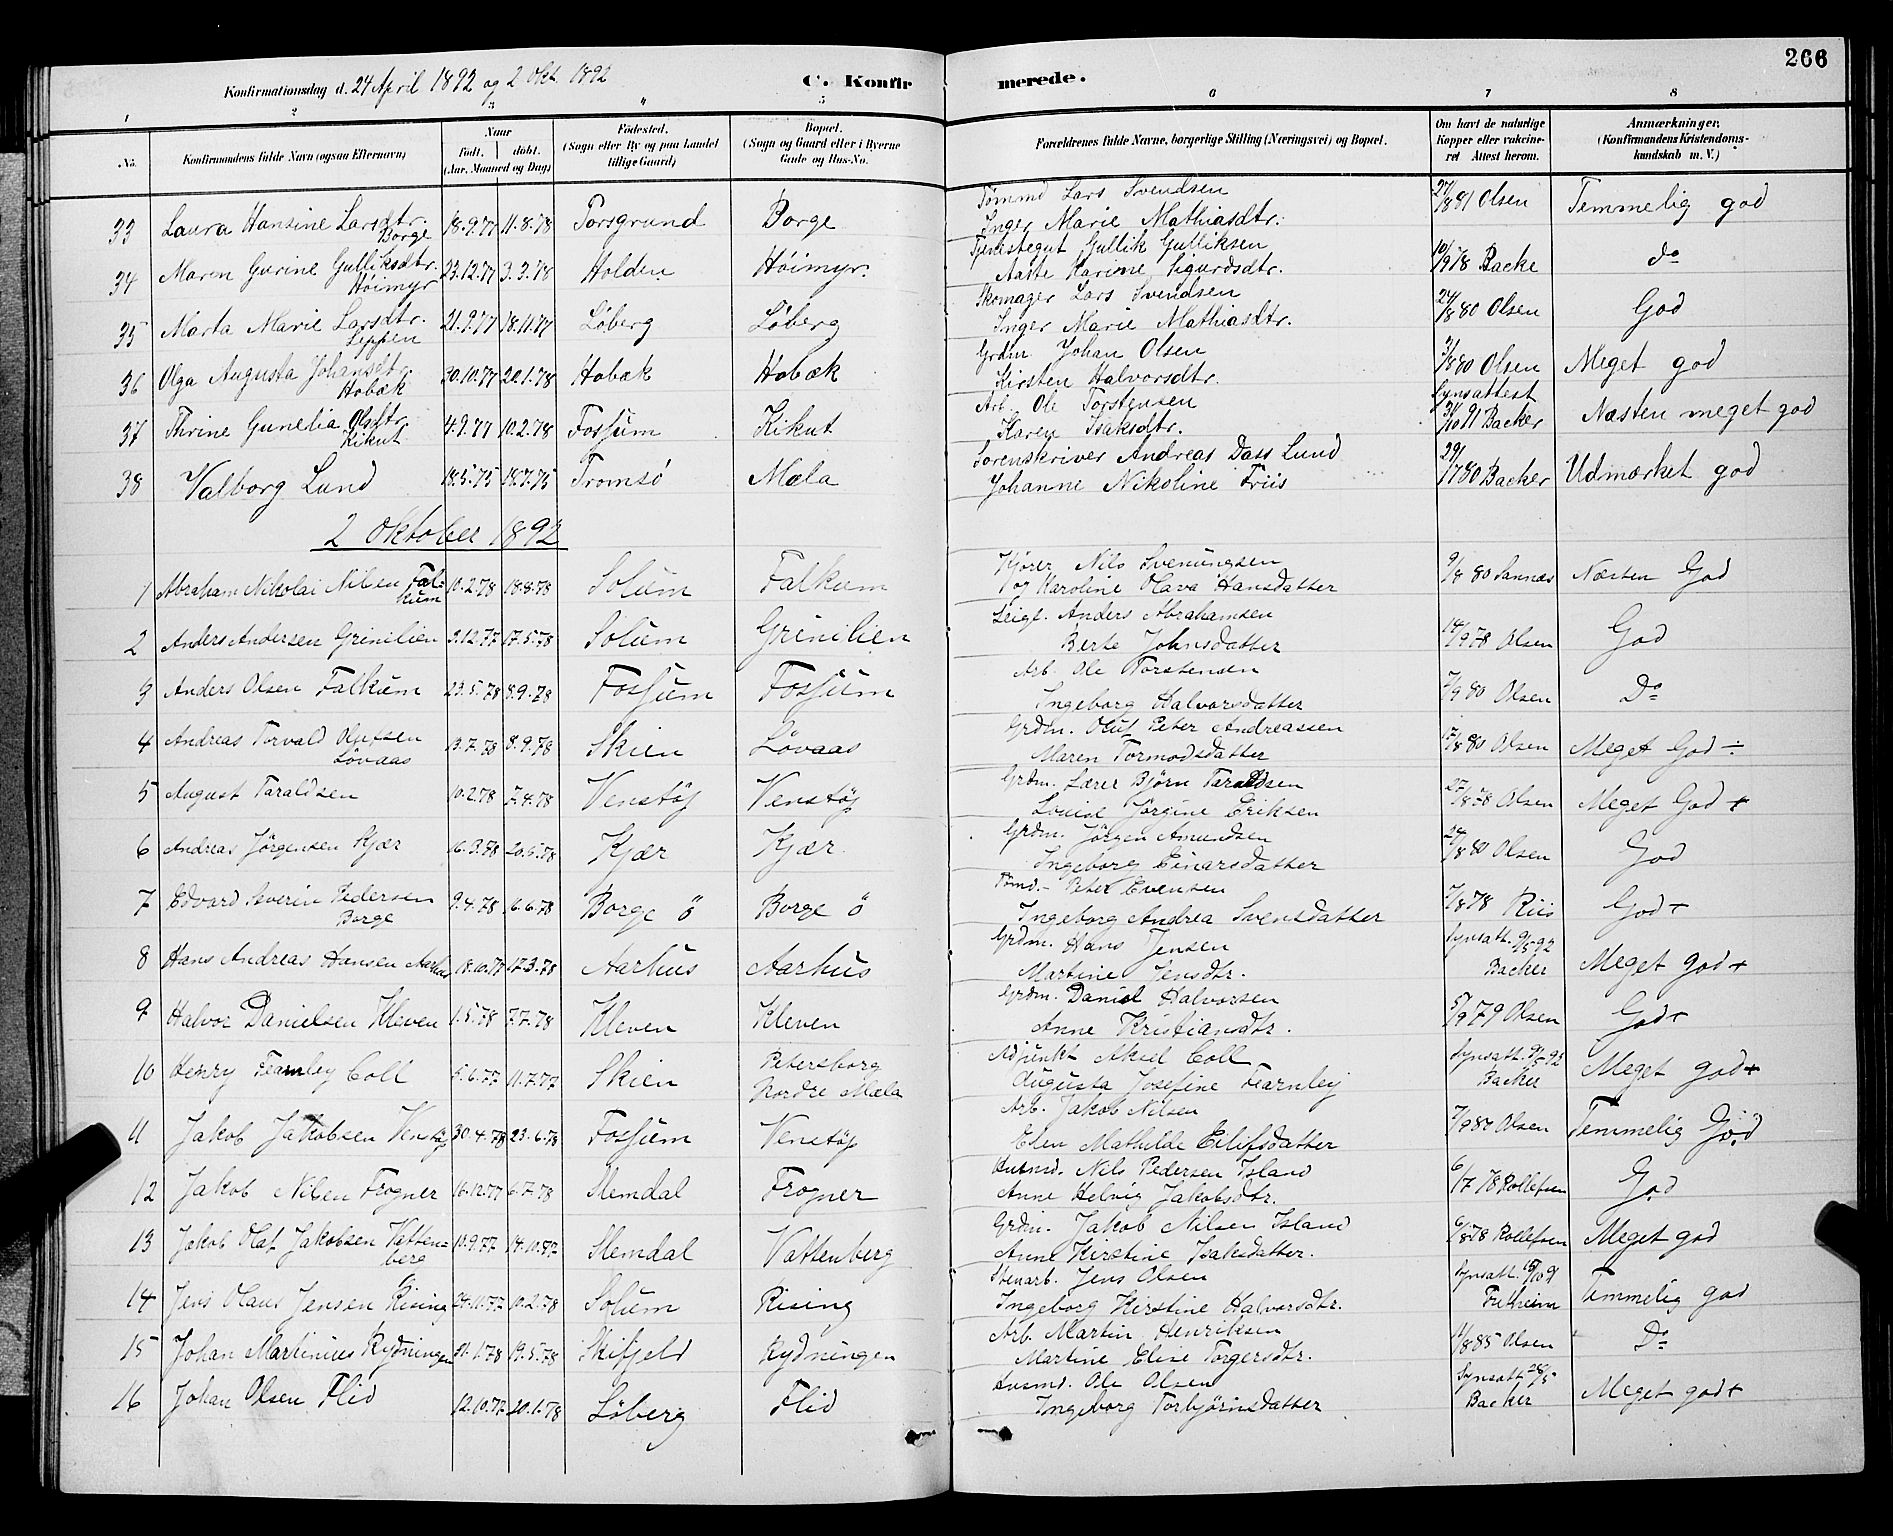 266
Konfirmationsdag d. 24 April 1892 og 2 Okt. 1892
C. Konfirmerede.
1 2 3 4 5 6 7 8
No. | Konfirmandens fulde Navn (ogsaa Efternavn) | Naar født, døbt. (Aar, Maaned og Dag) | Fødested. (Sogn eller By og paa Landet tillige Gaard) | Bopæl. (Sogn og Gaard eller i Byerne Gade og Hus-No. | Forældrenes fulde Navne, borgerlige Stilling (Næringsvei) og Bopæl. | Om havt de naturlige Kopper eller vakcineret Attest herom. | Anmærkninger. (Konfirmandens Kristendomskundskab m. V.)
33 Laura Hansine Larsdtr. Borge 18.9.77 11.8.78 Porsgrund Borge Tømmd Lars Svendsen
Inger Marie Mathiasdtr. 27/8 81 Olsen Temmelig god
34 Maren Gurine Gulliksdtr. Høimyr 23.12.77 3.3.78 Holden Høimyr. Tjenestegut Gullik Gulliksen
Aaste Karine Sigurdsdtr. 10/9 78 Backe do
35 Marta Marie Larsdtr. Leppen 21.9.77 18.11.77 Löberg Löberg Skomager Lars Svendsen
Inger Marie Mathiasdtr. 24/8 80 Olsen God
36 Olga Augusta Johansdtr. Hobæk 30.10.77 20.1.78 Hobæk Hobæk Grdm Johan Olsen
Kirsten Halvorsdtr. 3/8 80 Olsen Meget god
37 Thrine Gunelia Olsdtr. Kikut 4.9.77 10.2.78 Fossum Kikut Arb. Ole Torstensen
Karen Isaksdtr. Synsattest 31/10 91 Backer Næsten meget god
38 Valborg Lund 18.5.75 18.7.75 Tromsø Mæla Sorenskriver Andreas Dass Lund
Johanne Nikoline Friis 29/1 80 Backer Udmærket god
2 Oktober 1892
1 Abraham Nikolai Nilsen Falkum 10.2.78 18.8.78 Solum Falkum Kjører Nils Svenungsen
og Karoline Olava Hansdatter 9/8 80 Sannæs Næsten God
2 Anders Andersen Grinilien 3.12.77 17.5.78 Solum Grinilien Leigl. Anders Abrahamsen
Berte Johnsdatter 14/9 78 Olsen God
3 Anders Olsen Falkum 23.5.78 8.9.78 Fossum Fossum Arb. Ole Torstensen
Ingeborg Halvorsdatter 7/9 80 Olsen Do
4 Andreas Torvald Olufsen Lövaas 13.7.78 8.9.78 Skien Lövaas Grdm. Oluf Peter Andreassen
Maren Tormodsdatter 17/8 80 Olsen Meget God ÷
5 August Taraldsen 10.2.78 7.4.78 Venstöp Venstöp Grdm. Lærer Björn Taraldsen
Louise Jörgine Eriksen 27/8 78 Olsen Meget God +
6 Andreas Jörgensen Kjær 16.3.78 20.5.78 Kjær Kjær. Grdm. Jörgen Amundsen
Ingeborg Einarsdatter 24/8 80 Olsen God
7 Edvard Severin Pedersen Borge 9.4.78 6.6.78 Borge ö Borge ö Tømd. Peter Evensen
Ingeborg Andrea Svensdatter 7/8 78 Riis God +
8 Hans Andreas Hansen Aarhus 18.10.77 17.3.78 Aarhus Aarhus Grdm. Hans Jensen
Martine Jensdtr. Synsatt. 9/5 92 Backer Meget god +
9 Halvor Danielsen Kleven 1.5.78 7.7.78 Kleven Kleven Grdm. Daniel Halvorsen
Anne Kristiansdtr. 5/9 79 Olsen God +
10 Henry Fearnley Coll 5.6.77 11.7.77 Skien Petersborg Nordre Mæla Adjunkt Aksel Coll
Augusta Josefine Fearnley Synsatt. 9/5 92 Backer Meget god +
11 Jakob Jakobsen Venstöp 30.4.78 23.6.78 Fossum Venstöp Arb. Jakob Nilsen
Elen Mathilde Eilifsdatter 7/9 80 Olsen Temmelig God
12 Jakob Nilsen Frogner 16.12.77 6.7.78 Slemdal Frogner Husmd. Nils Pedersen Island
Anne Helvig Jakobsdtr. 6/7 78 Rollefsen God
13 Jakob Olaf Jakobsen Vattenberg 10.9.77 14.10.77 Slemdal Vattenberg Grdm. Jakob Nilsen Island
Anne Kirstine Isaksdatter. 6/8 78 Rollefsen Meget god
14 Jens Olaus Jensen Rising 24.11.77 10.2.78 Solum Rising Stenarb. Jens Olsen
Ingeborg Kirstine Halvorsdtr. Synsatt. Temmelig god
15 Johan Martinius Rydningen 31.1.78 19.5.78 Skifjeld Rydningen Arb. Martin Henriksen
Martine Elise Torgersdtr. 11/8 85 Olsen Do
16 Johan Olsen Flid 12.10.77 20.1.78 Löberg Flid Husmd. Ole Olsen
Ingeborg Torbjörnsdatter Synsatt. 28/5 Backer Meget god +